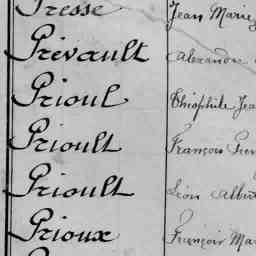 Presse Jean Marie
Prévault Alexandre
Prioul Théophile Jea
Prioult François Pier
Prioult Léon Albert
Prioux François Ma